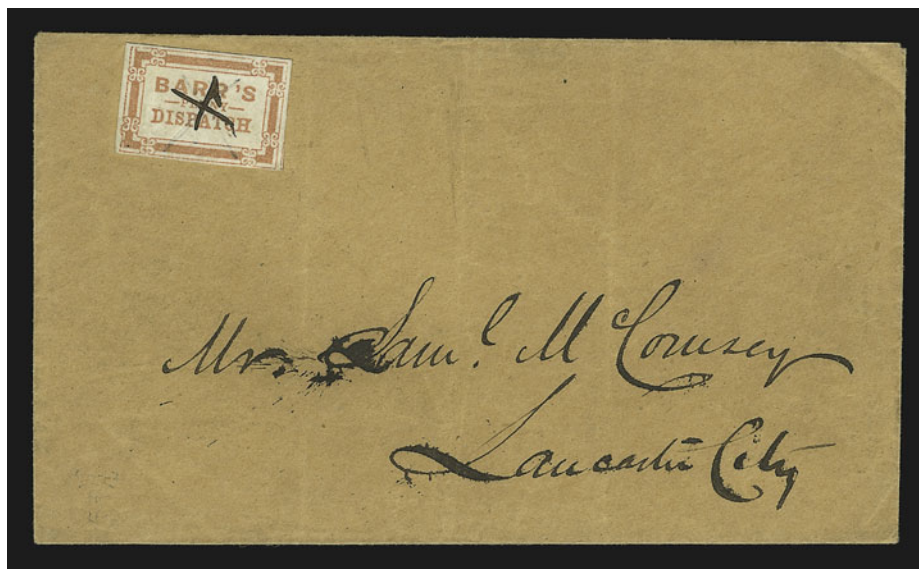 BARR'S
PENNY
DISPATCH
Mr. Saml. McComsey
Lancaster City